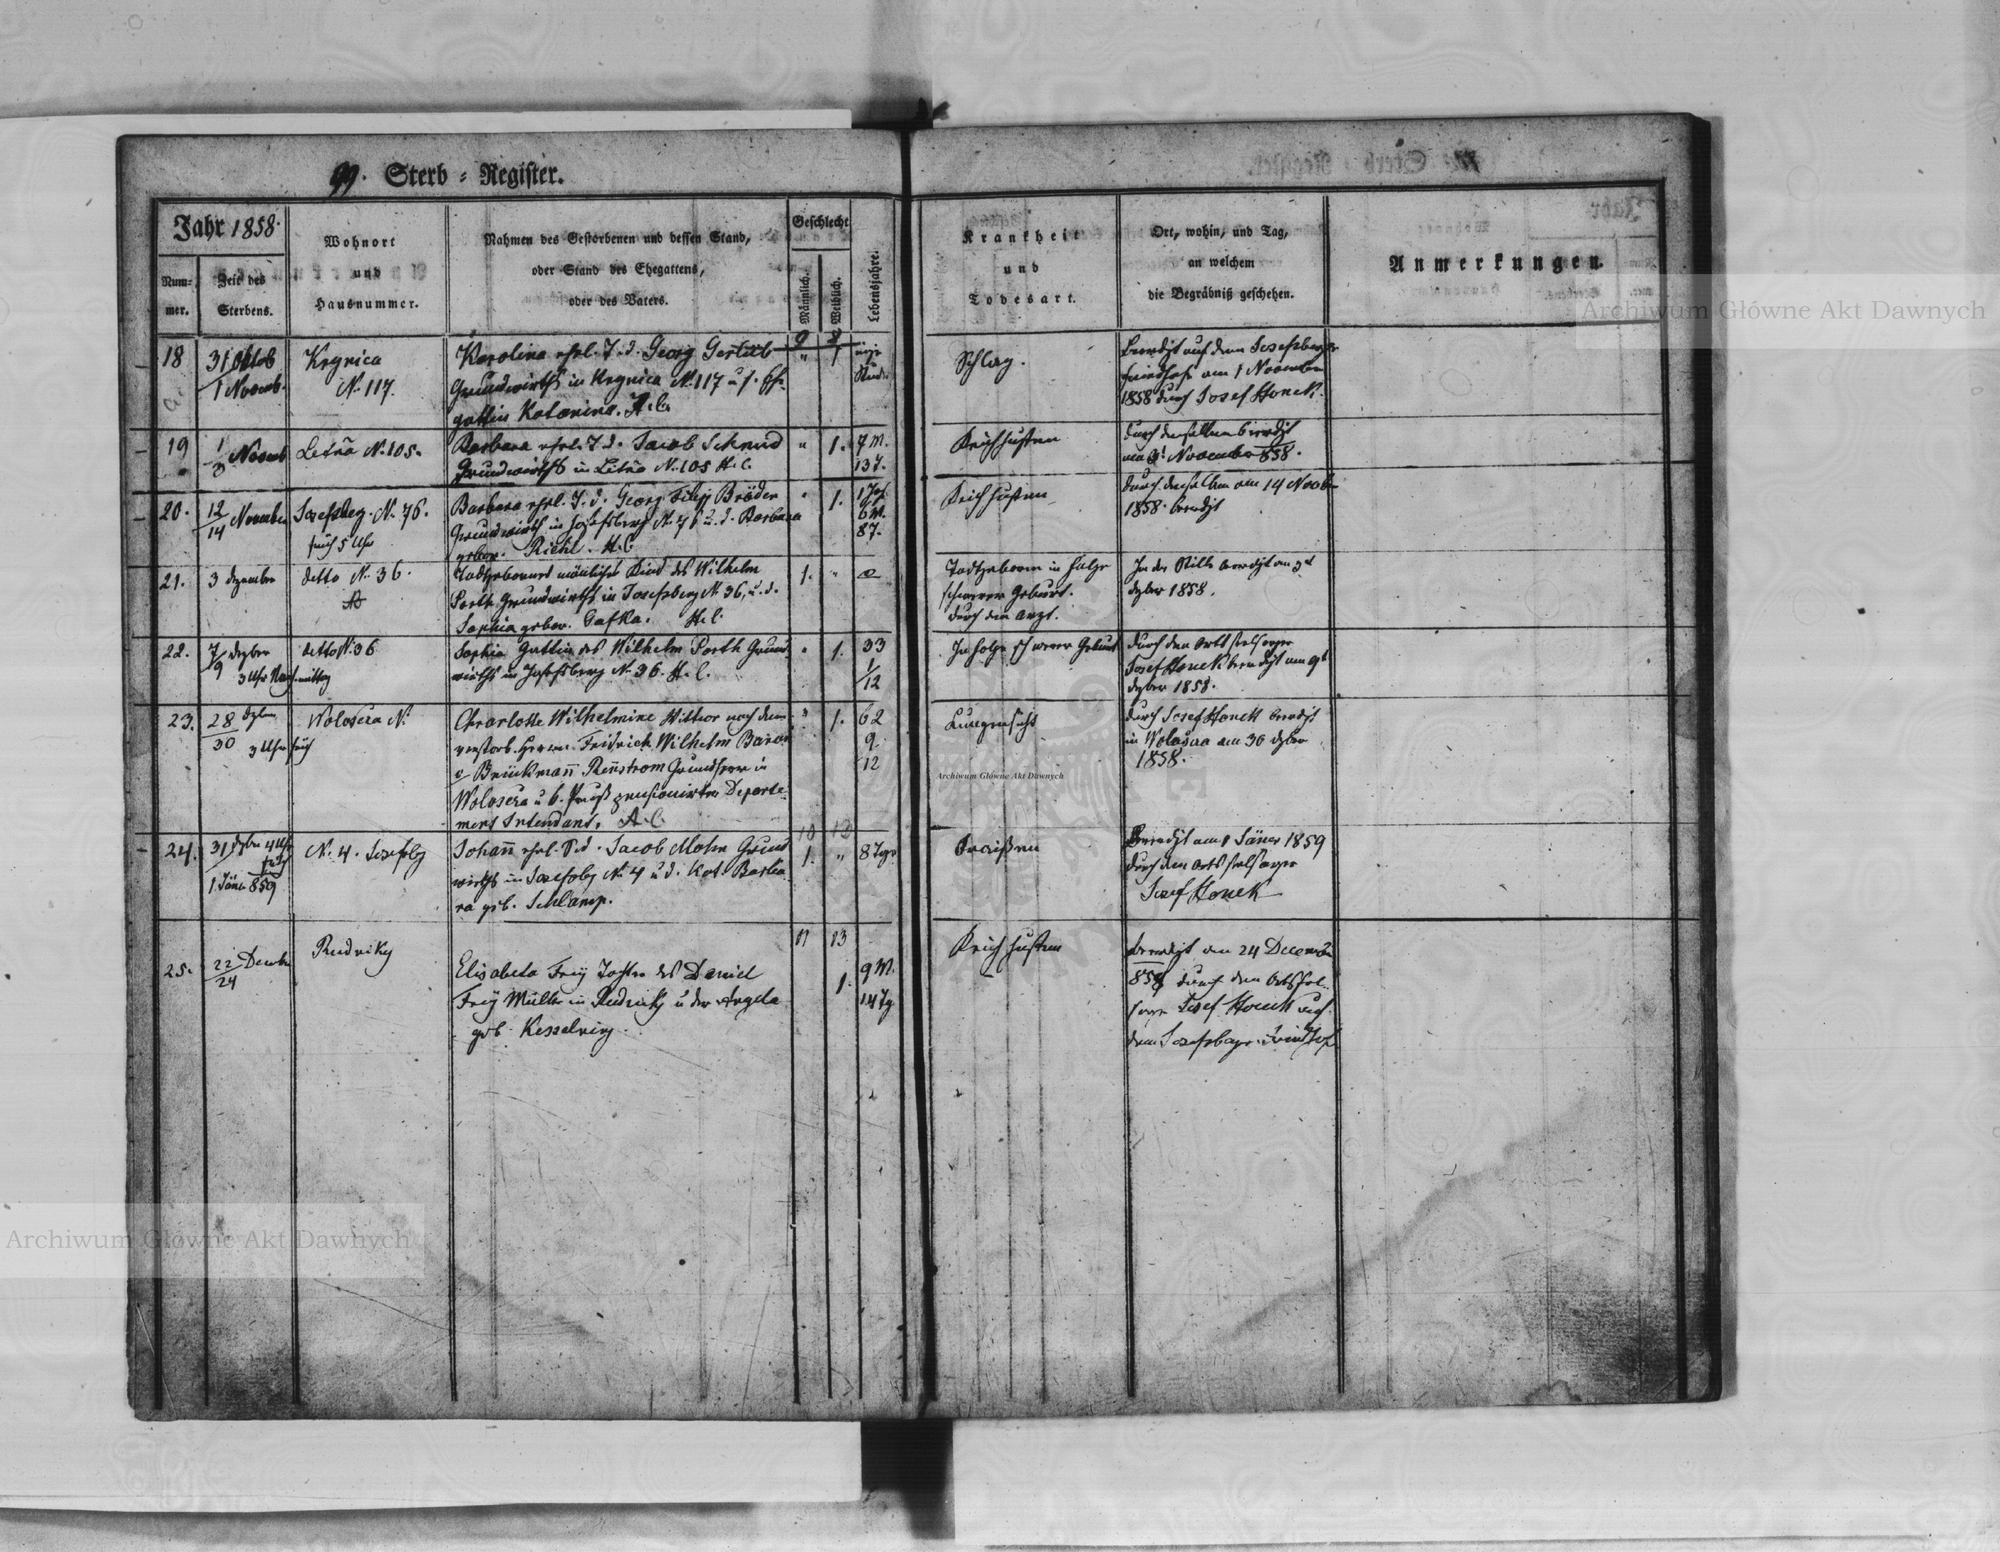 99. Sterb = Register.
Jahr 1858.
Num=
mer.
Zeit des
Sterbens.
Wohnort
und
Hausnummer.
Nahmen des Gestorbenen und dessen Stand,
oder Stand des Ehegattens,
oder des Vaters.
Geschlecht
Männlich.
Weiblich.
Lebensjahre.
Krankheit
und
Todesart.
Ort, wohin, und Tag,
an welchem
die Begräbniß geschehen.
Anmerkungen.
9
18
31 Oktob
1 Novemb.
Krynica
N. 117.
Karolina ehel. T. d. Georg Gerlieb
Grundwirths in Krynica N. 117 u. s. Ehe
gattin Katarina. A. C.
"
1
Schlag.
Beerdigt auf dem Josefsberger
Friedhofe am 1 November
1858 durch Josef Honek.
19
1
3
Novemb
Letnia N. 105.
Barbara ehel. T. d. Jacob Schmid
Grundwirths in Letnia N. 105 H. C.
"
1.
7 M.
13 T.
Keichhusten
durch denselben beerdigt
am November 858.
20.
12
14
November
Josefsberg. N. 76.
früh 5 Uhr
Barbara ehel. T. d. Georg Filip Bräder
Grundwirth in Josefsberg N. 76 u. d. Barbara
gebor. Riehl. H. C.
"
1.
6 M.
8 T.
Keichhusten
durch denselben am 14 Novbr
1858. beerdigt
21.
3 Dezember
detto N. 36.
Todtgebornes männliches Kind des Wilhelm
Porth Grundwirths in Josefsberg N. 36, u. d.
Sophia gebor. Cafka. H. C.
1.
"
Todtgeboren in Folge
schwerer Geburt.
durch den Arzt.
In der Stille beerdigt am 3t
dezber 1858.
22.
7
9
dezber
3 Uhr Nachmittag
detto N. 36
Sophia Gattin des Wilhelm Porth Grund
wirths in Josefsberg N. 36. H. C.
"
1.
33
1
12
In Folge schwerer Geburt
durch den Ortsseelsorger
Josef Honek beerdigt am 9t
dezber 1858.
23.
28
30
dezbr
3 Uhr früh
Wolosera N.
Charlotte Wilhelmine Wittwe nach dem
verstorb. Herrn. Fridrich Wilhelm Baron
v Brükmann Rennstrom Grundherr in
Wolosera u. k. Preuß pensionirter Departe-
ment Intendant. A. C.
"
1.
62
9
12
Lungensucht
durch Josef Honek beerdigt
in Wolosera am 30 dezber
1858.
10
12
24.
31 dezbr 4 Uhr
früh
1 Jäner 859
N. 4. Josefsbg
Johann ehel. S. d. Jacob Mohr Grund
wirths in Josefsbg N. 4 u. d. Kat. Barba
ra geb. Schlamp.
1.
"
8 Tge
Fraißen
Beerdigt am 1 Jäner 1859
durch den Ortsseelsorger
Josef Honek
11
13
25.
22
24
Decmbr
Rudniky
Elisabeta Frey Tochter des Daniel
Frey Müller in Rudniky u der Angela
geb. Kesselring.
1.
9 M.
14 Tg
Keichhusten
beerdigt am 24 December
858 durch den Ortsseel-
sorger Josef Honek auf
dem Josefsberger Friedhof
Archiwum Główne Akt Dawnych
Archiwum Główne Akt Dawnych
Archiwum Główne Akt Dawnych